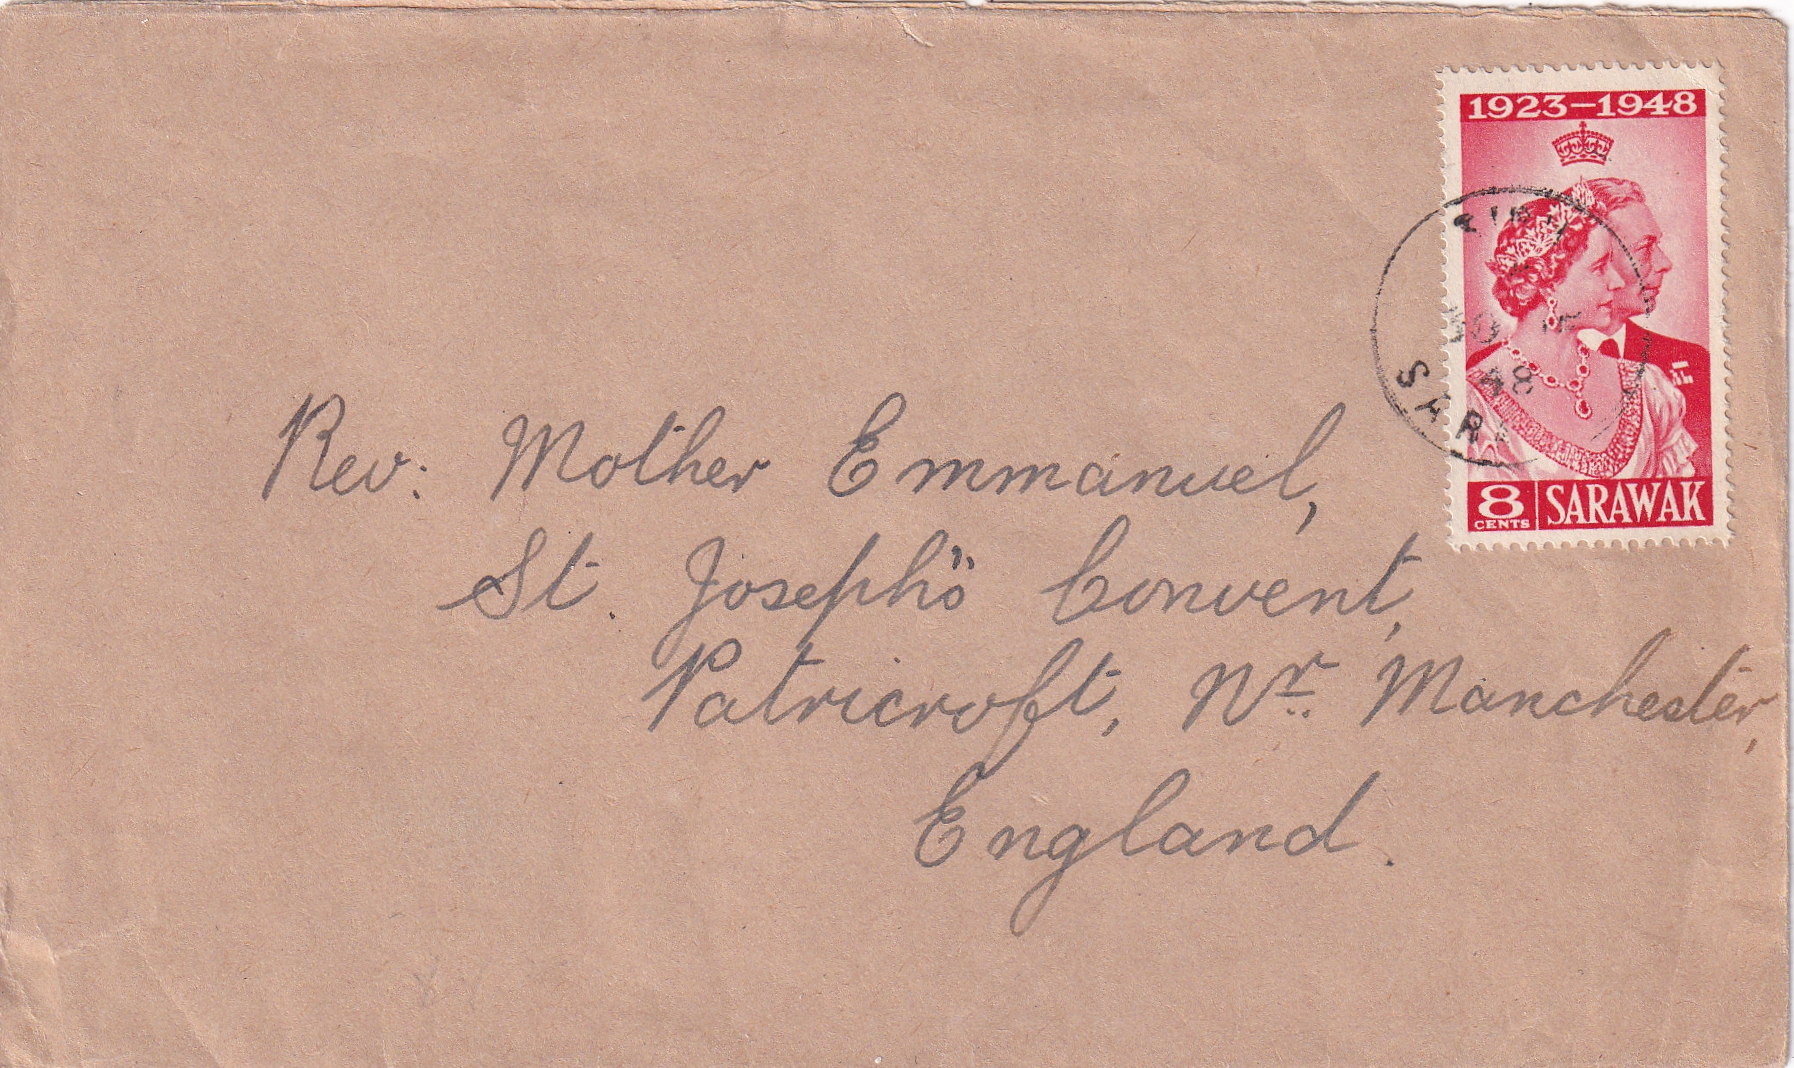 1923–1948
8 CENTS SARAWAK
SAR
Rev. Mother Emmanuel,
St. Joseph's Convent,
Patricroft, Nr. Manchester,
England.